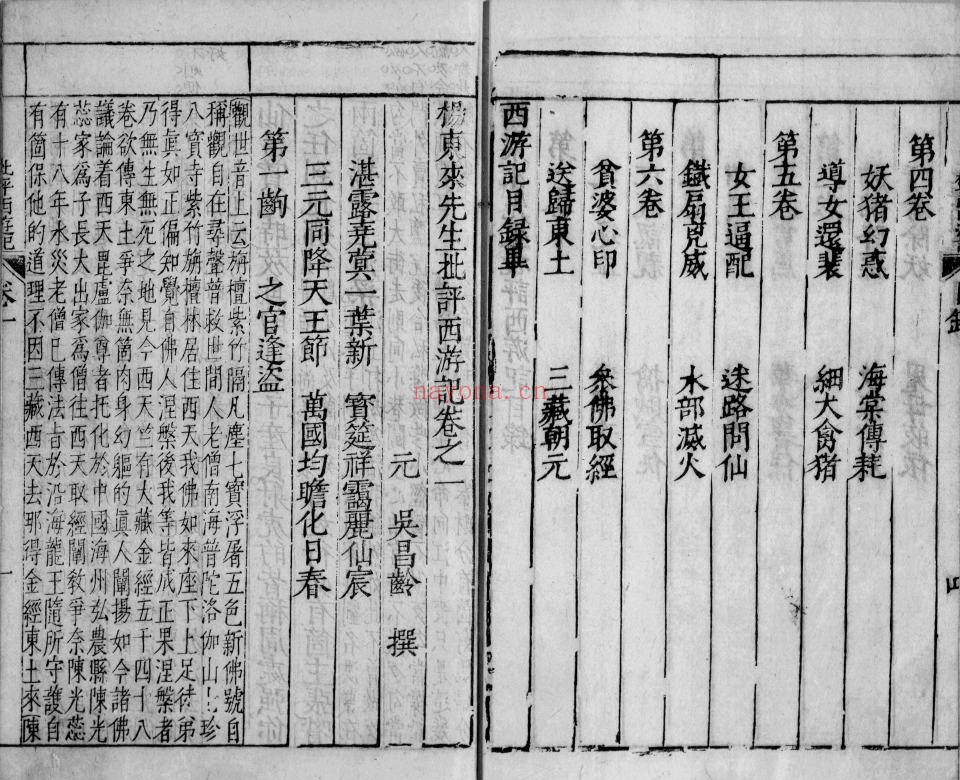 第四卷
妖猪幻惑 海棠傳耗
導女還裴 細犬禽猪
第五卷
女王逼配 迷路問仙
鐵扇克威 水部滅火
第六卷
貧婆心印 衆佛取經
送歸東土 三藏朝元
西游記目録畢
四
楊東來先生批評西游記卷之一
元 吳昌齡 撰
湛露堯蓂一葉新 寳筵祥靄麗仙宸
三元同降天王節 萬國均瞻化日春
第一齣 之官逢盜
觀世音上云旃檀紫竹隔凡塵七寳浮屠五色新佛號自
稱觀自在尋聲普救世間人老僧南海普陀洛伽山七珍
八寳寺紫竹旃檀林居住西天我佛如來座下上足徒弟
得眞如正徧知覺自佛人涅槃後我等皆成正果涅槃者
乃無生無死之地見今西天竺有大藏金經五千四十八
卷欲傳東土爭奈無箇肉身幻軀的眞人闡揚如今諸佛
議論着西天毘盧伽尊者托化於中國海州弘農縣陳光
蕊家爲子長大出家爲僧往西天取經闡敎爭奈陳光蕊
有十八年水災老僧已傳法旨於沿海龍王隨所守護自
有箇保他的道理不因三藏西天去那得金經東土來陳
批評西游記 卷一
一
nayona.cn